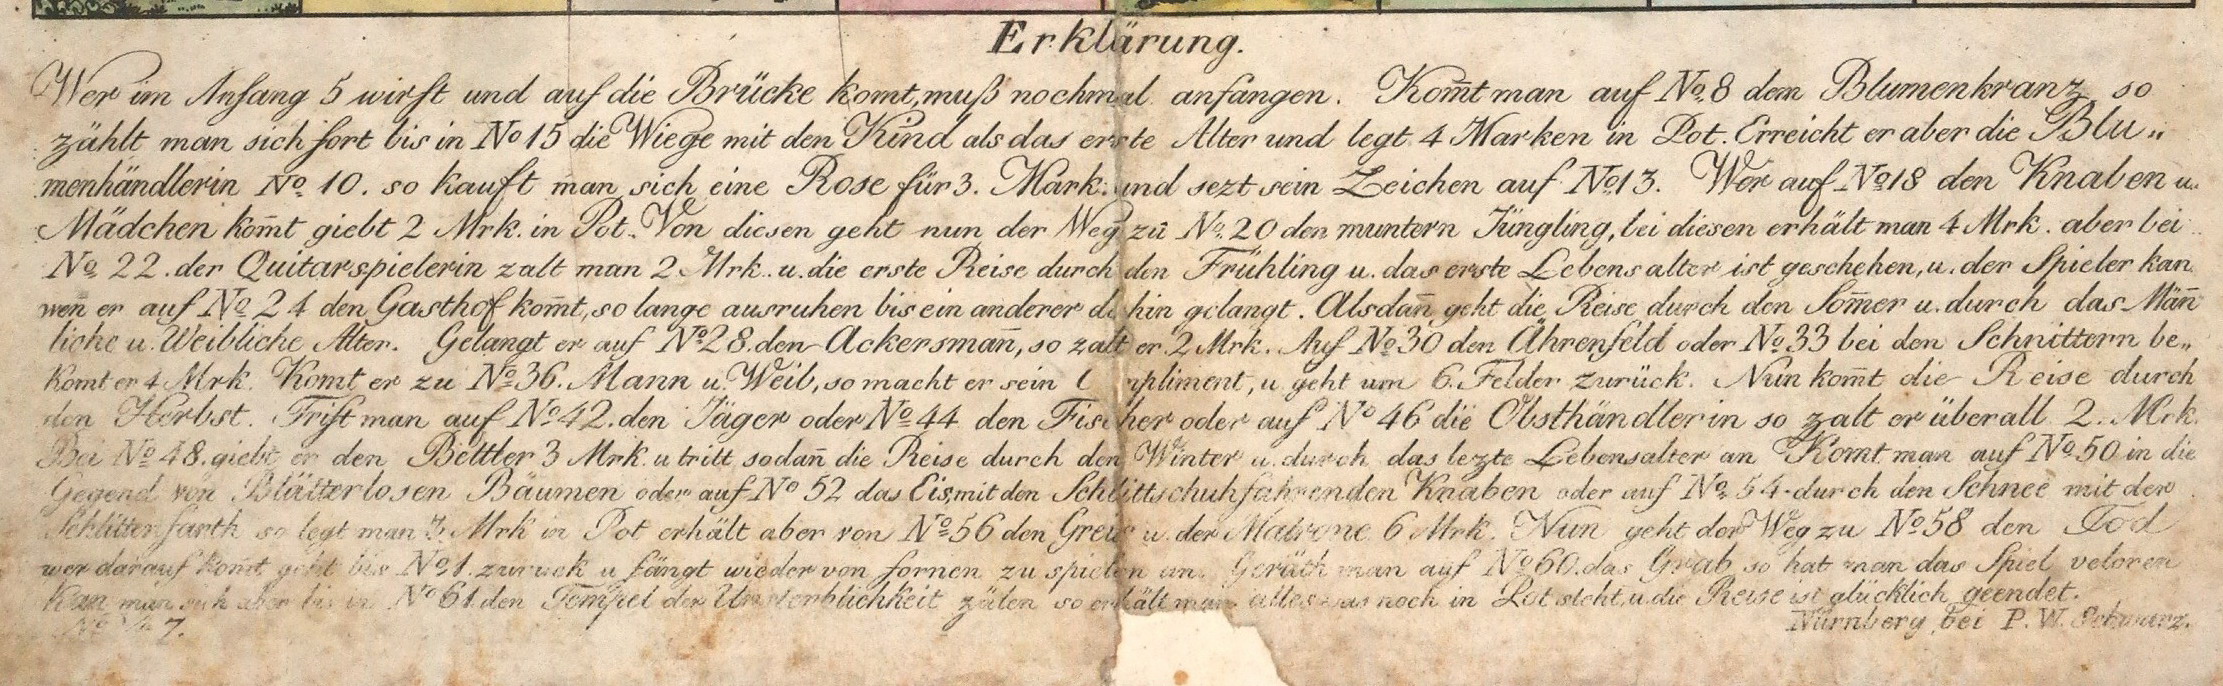 Erklärung.
Wer im Anfang 5 wirft und auf die Brücke kom̄t, muß nochmal anfangen. Kom̄t man auf No. 8 dem Blumenkranz so
zählt man sich fort bis in No 15 die Wiege mit den Kind als das erste Alter und legt 4 Marken in Pot. Erreicht er aber die Blu„
menhändlerin No. 10. so kauft man sich eine Rose für 3. Mark. und sezt sein Zeichen auf No 13. Wer auf No 18 den Knaben u.
Mädchen kom̄t giebt 2 Mrk. in Pot. Von diesen geht nun der Weg zu No. 20 den muntern Jüngling, bei diesen erhält man 4 Mrk. aber bei
No. 22. der Quitarspielerin zalt man 2 Mrk. u. die erste Reise durch den Frühling u. das erste Lebensalter ist geschehen, u. der Spieler kan
wen̄ er auf No. 24 den Gasthof kom̄t, so lange ausruhen bis ein anderer dahin gelangt. Alsdan̄ geht die Reise durch den Som̄er u. durch das Män̄
liche u. Weibliche Alter. Gelangt er auf No. 28. den Ackersman̄, so zalt er 2 Mrk. Auf No. 30 den Ährenfeld oder No. 33 bei den Schnittern be„
komt er 4 Mrk. Komt er zu No. 36. Mann u. Weib, so macht er sein Compliment, u. geht um 6. Felder zurück. Nun kom̄t die Reise durch
den Herbst. Trift man auf No. 42. den Jäger oder No 44 den Fischer oder auf No 46 die Obsthändlerin so zalt er überall 2. Mrk.
Bei No. 48. giebt er den Bettler 3 Mrk. u tritt sodan̄ die Reise durch den Winter u. durch das lezte Lebensalter an Komt man auf No. 50 in die
Gegend von Blätterlosen Bäumen oder auf No 52 das Eis, mit den Schlittschuhfahrenden Knaben oder auf No. 54 durch den Schnee mit der
Schlittenfarth so legt man 3 Mrk in Pot erhält aber von No. 56 den Greis u. der Matrone 6 Mrk. Nun geht der Weg zu No. 58 den Tod
wer darauf kom̄t geht bis No. 1. zurück u fängt wieder von fornen zu spielen an. Geräth man auf No. 60. das Grab so hat man das Spiel veloren
Kan man sich aber bis in No 61 den Tempel der Unsterblichkeit zälen so erhält man alles was noch in Pot steht, u. die Reise ist glücklich geendet.
Nürnberg bei P. W. Schwarz.